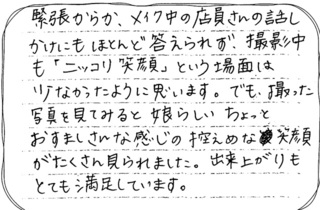 緊張からか、メイク中の店員さんの話し
かけにもほとんど答えられず、撮影中
も「ニッコリ笑顔」という場面は
少なかったように思います。でも、撮った
写真を見てみると娘らしい ちょっと
おすましさんな感じの控えめな笑顔
がたくさん見られました。出来上がりも
とても満足しています。